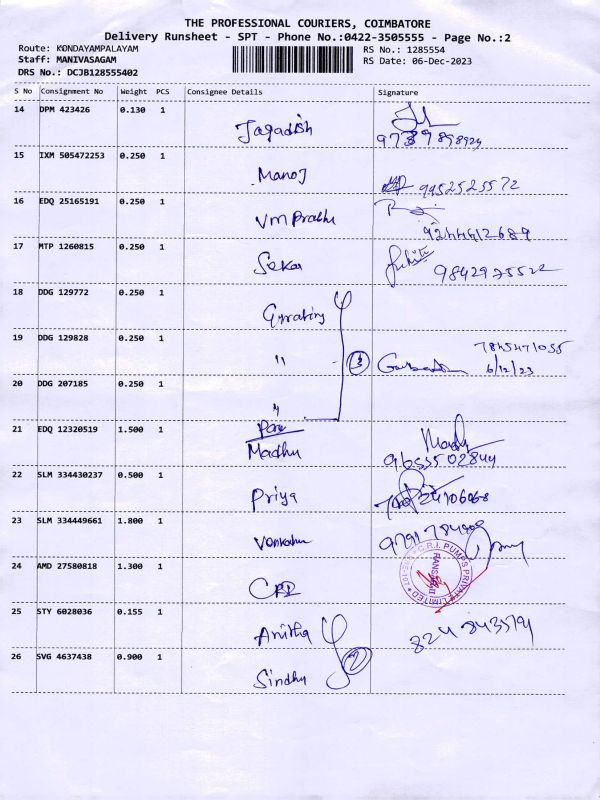 THE PROFESSIONAL COURIERS, COIMBATORE
Delivery Runsheet - SPT - Phone No.:0422-3505555 - Page No.:2
Route: KONDAYAMPALAYAM
Staff: MANIVASAGAM
DRS No.: DCJB128555402
RS No.: 1285554
RS Date: 06-Dec-2023
S No Consignment No Weight PCS Consignee Details Signature
14 DPM 423426 0.130 1
Jagadish
15 IXM 505472253 0.250 1
Manoj 9952525572
16 EDQ 25165191 0.250 1
VM Prabhu
9244412689
17 MTP 1260815 0.250 1
Sekar 9842975522
18 DDG 129772 0.250 1
19 DDG 129828 0.250 1
7845471055
" 3 6/12/23
20 DDG 207185 0.250 1
"
21 EDQ 12320519 1.500 1
Madhu 9655502844
22 SLM 334430237 0.500 1
Priya
23 SLM 334449661 1.800 1
9791784908
24 AMD 27580818 1.300 1
C.R.I. PUMPS PRIVATE LIMITED
CRI
25 STY 6028036 0.155 1
Anitha
26 SVG 4637438 0.900 1
2
Sindhu